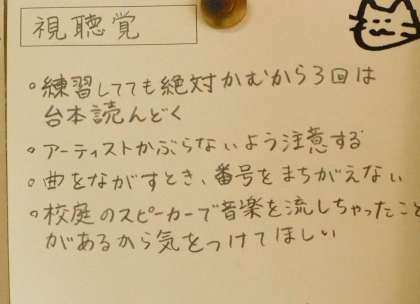 視聴覚
。練習してても絶対かむから3回は
台本読んどく
。アーティストかぶらないよう注意する
。曲をながすとき、番号をまちがえない
。校庭のスピーカーで音楽を流しちゃったこと
があるから気をつけてほしい